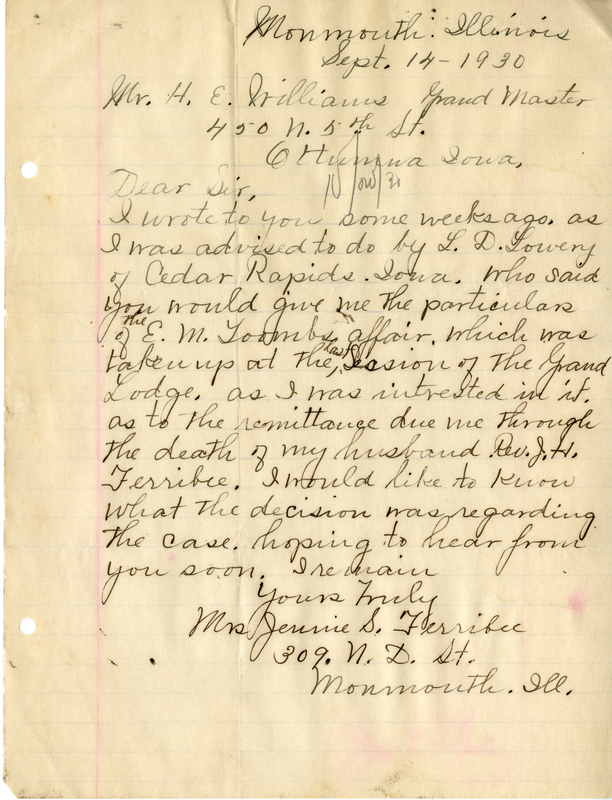 Monmouth. Illinois
Sept. 14-1930
Mr. H. E. Williams Grand Master
450 N. 5th St.
Ottumwa Iowa,
Dear Sir,
I wrote to you some weeks ago. as
I was advised to do by L. D. Lowery
of Cedar Rapids. Iowa. who said
you would give me the particulars
of the E. M. Toombs affair, which was
taken up at the last Session of the Grand
Lodge. as I was intrested in it.
as to the remittance due me through
the death of my husband Rev. J. H.
Ferribee. I would like to know
what the decision was regarding
the case. hoping to hear from
you soon. I remain
Yours Truly
Mrs Jennie S. Ferribee
309. N. D. St.
Monmouth. Ill.